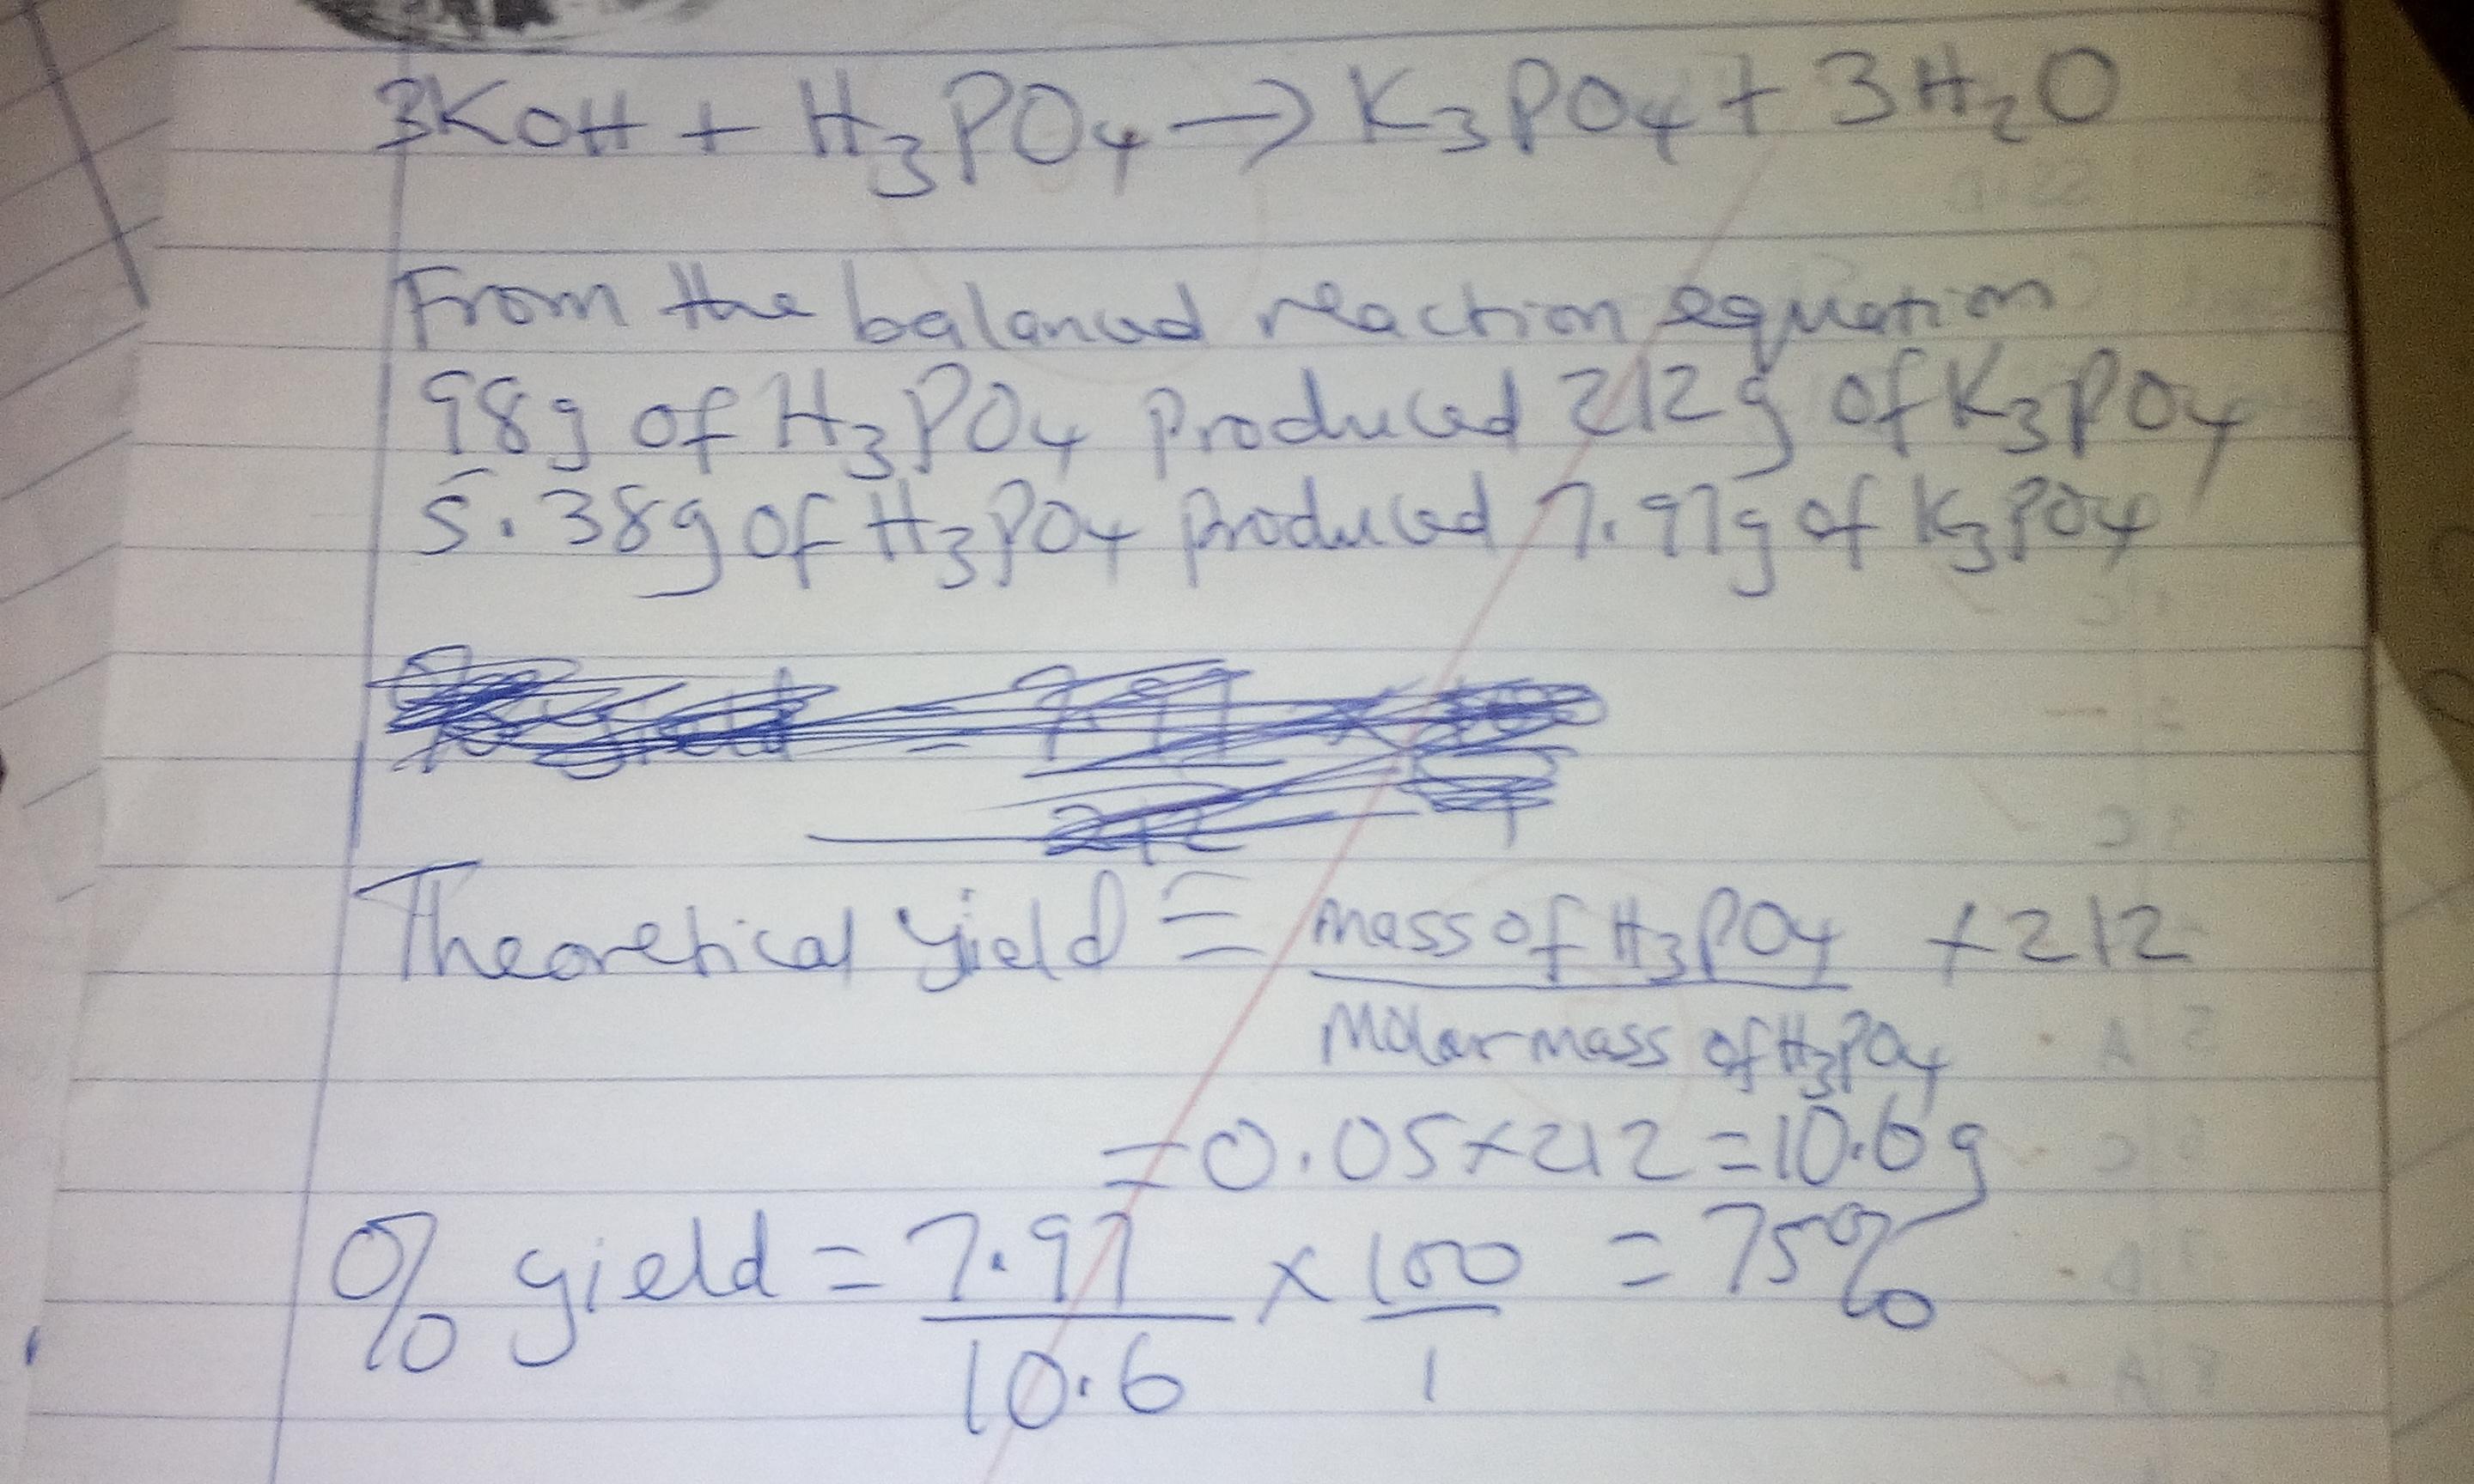 3KOH + H₃PO₄ → K₃PO₄ + 3H₂O
From the balanced reaction equation
98g of H₃PO₄ produced 212g of K₃PO₄
5.38g of H₃PO₄ produced 7.97g of K₃PO₄
Theoretical yield = mass of H₃PO₄ × 212
Molar mass of H₃PO₄
= 0.05 × 212 = 10.6g
% yield = 7.97 × 100 = 75%
10.6 1